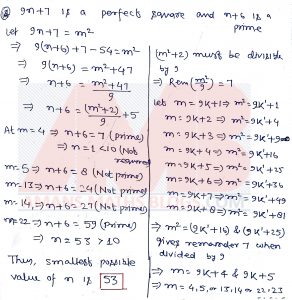 9n+7 is a perfect square and n+6 is a prime
Let 9n+7 = m²
⇒ 9(n+6)+7-54 = m²
⇒ 9(n+6) = m²+47
⇒ n+6 = m²+47/9
⇒ n+6 = (m²+2)/9 + 5
At m=4 ⇒ n+6 = 7 (Prime)
⇒ n=1<10 (Not
m=5 ⇒ n+6 = 8 (Not Prime)
m=13 ⇒ n+6 = 24 (Not Prime)
m=14, ⇒ n+6 = 27 (Not Prime)
m=22 ⇒ n+6 = 59 (Prime)
⇒ n = 53 > 10
Thus, smallest possible
value of n is 53
(m²+2) must be divisible
by 9
⇒ Rem (m²/9) = 7
Let m = 9K+1 ⇒ m² = 9K'+1
m = 9K+2 ⇒ m² = 9K'+4
m = 9K+3 ⇒ m² = 9K'+9
m = 9K+4 ⇒ m² = 9K'+16
m = 9K+5 ⇒ m² = 9K'+25
m = 9K+6 ⇒ m² = 9K'+36
m = 9K+7 ⇒ m² = 9K'+49
m = 9K+8 ⇒ m² = 9K'+81
⇒ m² = (9K'+16) & (9K'+25)
gives remainder 7 when
divided by 9
⇒ m = 9K+4 & 9K+5
⇒ m = 4, 5, or 13, 14 or 22, 23